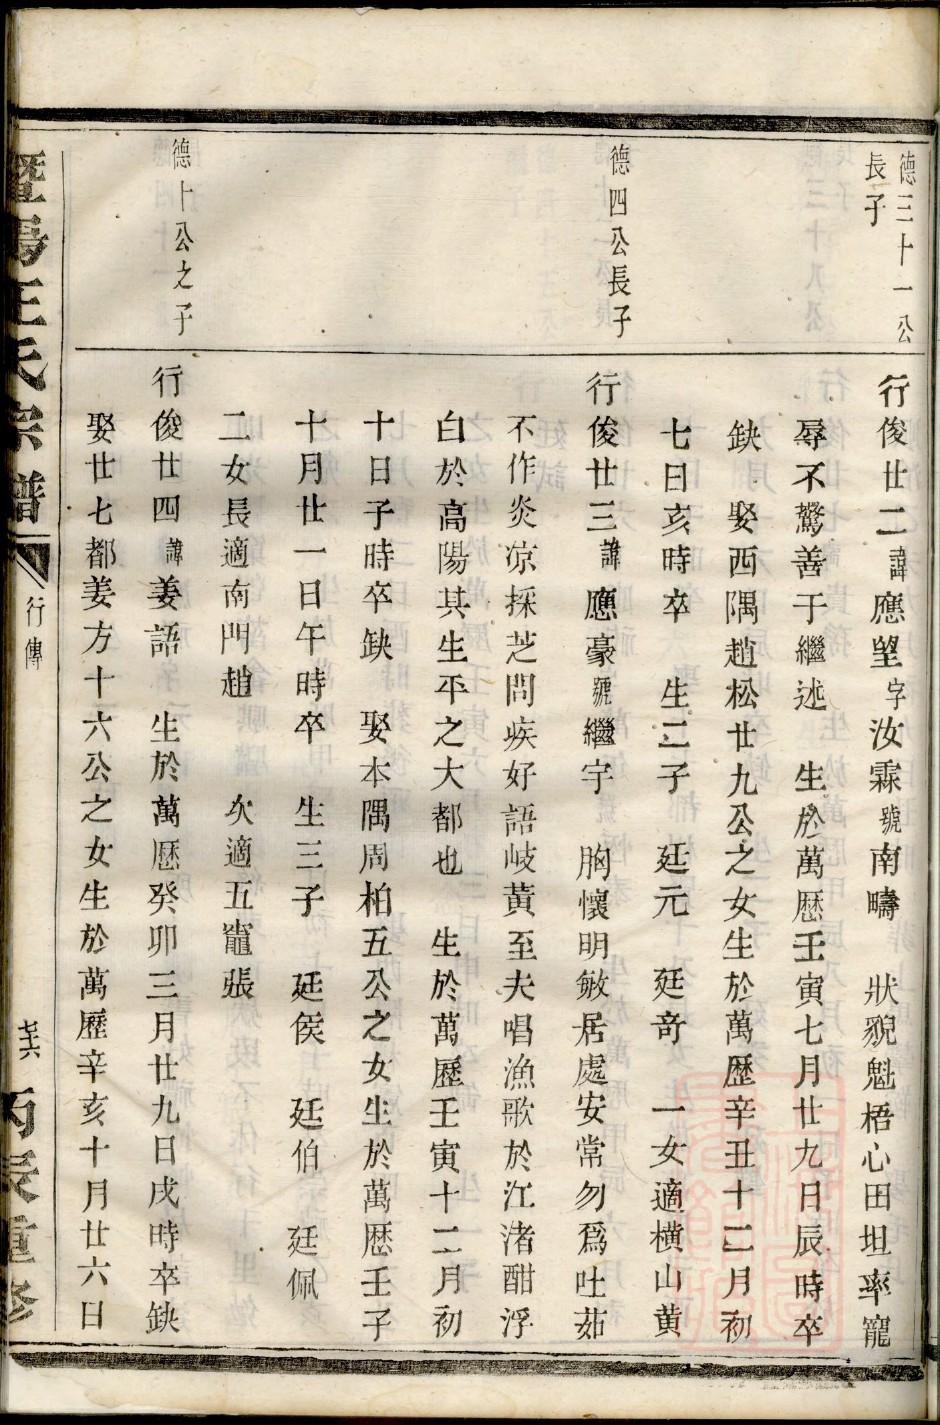 德三十一公
長子
行俊廿二諱應望字汝霖號南疇 狀貌魁梧心田坦率寵
辱不驚善于繼述 生於萬歷壬寅七月廿九日辰時卒
缺 娶西隅趙松廿九公之女生於萬歷辛丑十二月初
七日亥時卒 生二子 廷元 廷奇 一女適橫山黃
德四公長子
行俊廿三諱應豪號繼宇 胸懷明敏居處安常勿爲吐茹
不作炎凉採芝問疾好語岐黃至夫唱漁歌於江渚酣浮
白於高陽其生平之大都也 生於萬歷壬寅十二月初
十日子時卒缺 娶本隅周柏五公之女生於萬歷壬子
十月廿一日午時卒 生三子 廷侯 廷伯 廷佩
二女長適南門趙 次適五竈張
德十公之子
行俊廿四諱姜語 生於萬歷癸卯三月廿九日戌時卒缺
娶廿七都姜方十六公之女生於萬歷辛亥十月廿六日
暨陽王氏宗譜 行傳 丙辰重修